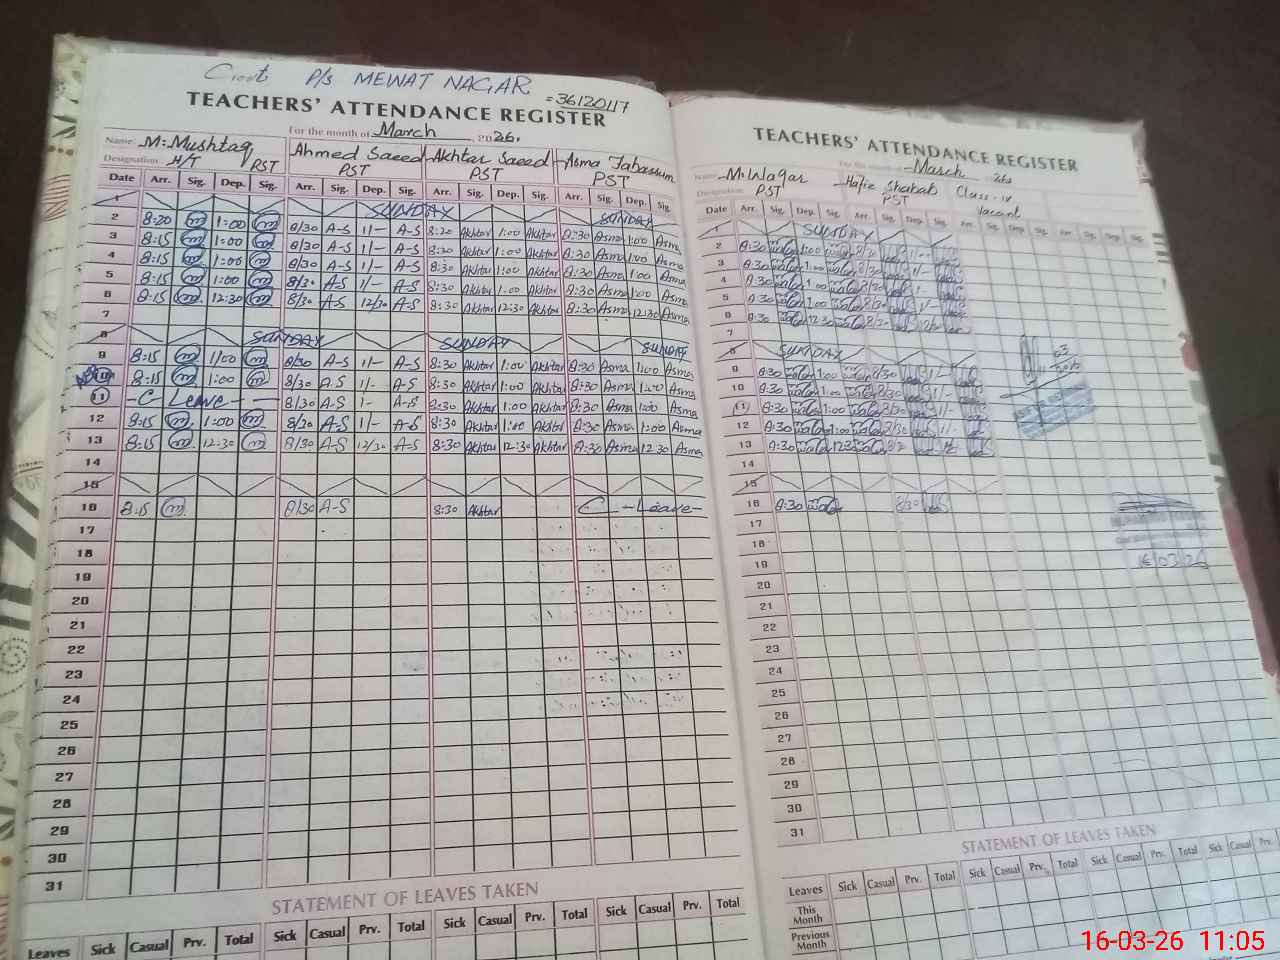 Govt P/s MEWAT NAGAR
=36120117
TEACHERS' ATTENDANCE REGISTER
For the month of March 2026.
Name: M. Mushtaq Ahmed Saeed Akhtar Saeed Asma Tabassum
Designation H/T PST PST PST PST
Date Arr. Sig. Dep. Sig. Arr. Sig. Dep. Sig. Arr. Sig. Dep. Sig. Arr. Sig. Dep. Sig.
1 SUNDAY SUNDAY
2 8:20 m 1:00 m 8/30 A-S 1/- A-S 8:20 Akhtar 1:00 Akhtar 8:30 Asma 1:00 Asma
3 8:15 m 1:00 m 8/30 A-S 1/- A-S 8:20 Akhtar 1:00 Akhtar 8:30 Asma 1:00 Asma
4 8:15 m 1:00 m 8/30 A-S 1/- A-S 8:30 Akhtar 1:00 Akhtar 8:30 Asma 1:00 Asma
5 8:15 m 1:00 m 8/30 A-S 1/- A-S 8:30 Akhtar 1:00 Akhtar 8:30 Asma 1:00 Asma
6 8:15 m 12:30 m 8/30 A-S 12/30 A-S 8:30 Akhtar 12:30 Akhtar 8:30 Asma 12:30 Asma
7
8 SUNDAY SUNDAY SUNDAY
9 8:15 m 1/00 m 8/30 A-S 1/- A-S 8:30 Akhtar 1:00 Akhtar 8:30 Asma 1:00 Asma
10 8:15 m 1:00 m 8/30 A-S 1/- A-S 8:30 Akhtar 1:00 Akhtar 8:30 Asma 1:00 Asma
11 -C Leave- 8/30 A-S 1- A-S 8:30 Akhtar 1:00 Akhtar 8:30 Asma 1:00 Asma
12 8:15 m 1:00 m 8/30 A-S 1/- A-S 8:30 Akhtar 1:00 Akhtar 8:30 Asma 1:00 Asma
13 8:15 m 12:30 m 8/30 A-S 12/30 A-S 8:30 Akhtar 12:30 Akhtar 8:30 Asma 12:30 Asma
14
15
16 8:15 m 8/30 A-S 8:30 Akhtar C-Leave-
17
18
19
20
21
22
23
24
25
26
27
28
29
30
31
STATEMENT OF LEAVES TAKEN
Leaves Sick Casual Prv. Total Sick Casual Prv. Total Sick Casual Prv. Total Sick Casual Prv. Total
TEACHERS' ATTENDANCE REGISTER
For the month of March 26
Name M. Waqar Hafiz Shahab Class-IV
Designation PST PST Vacant
Date Arr. Sig. Dep. Sig. Arr. Sig. Dep. Sig. Arr. Sig. Dep. Sig. Arr. Sig. Dep. Sig.
1 SUNDAY
2 8:30 1:00 8/30 1/-
3 8:30 1:00 8/30 1/-
4 8:30 1:00 8/30 1-
5 8:30 1:00 8/30 1/-
6 8:30 12:30 8/30 12/30
7
8 SUNDAY
9 8:30 1:00 8/30 1/-
10 8:30 1:00 8/30 1/-
11 8:30 1:00 8/30 1/-
12 8:30 1:00 8/30 1/-
13 8:30 12:30
14
15
16 8:30 8/30
17
18
16/03/26
19
20
21
22
23
24
25
26
27
28
29
30
31
STATEMENT OF LEAVES TAKEN
Leaves Sick Casual Prv. Total Sick Casual Prv. Total Sick Casual Prv.
This Month
Previous Month
16-03-26 11:05